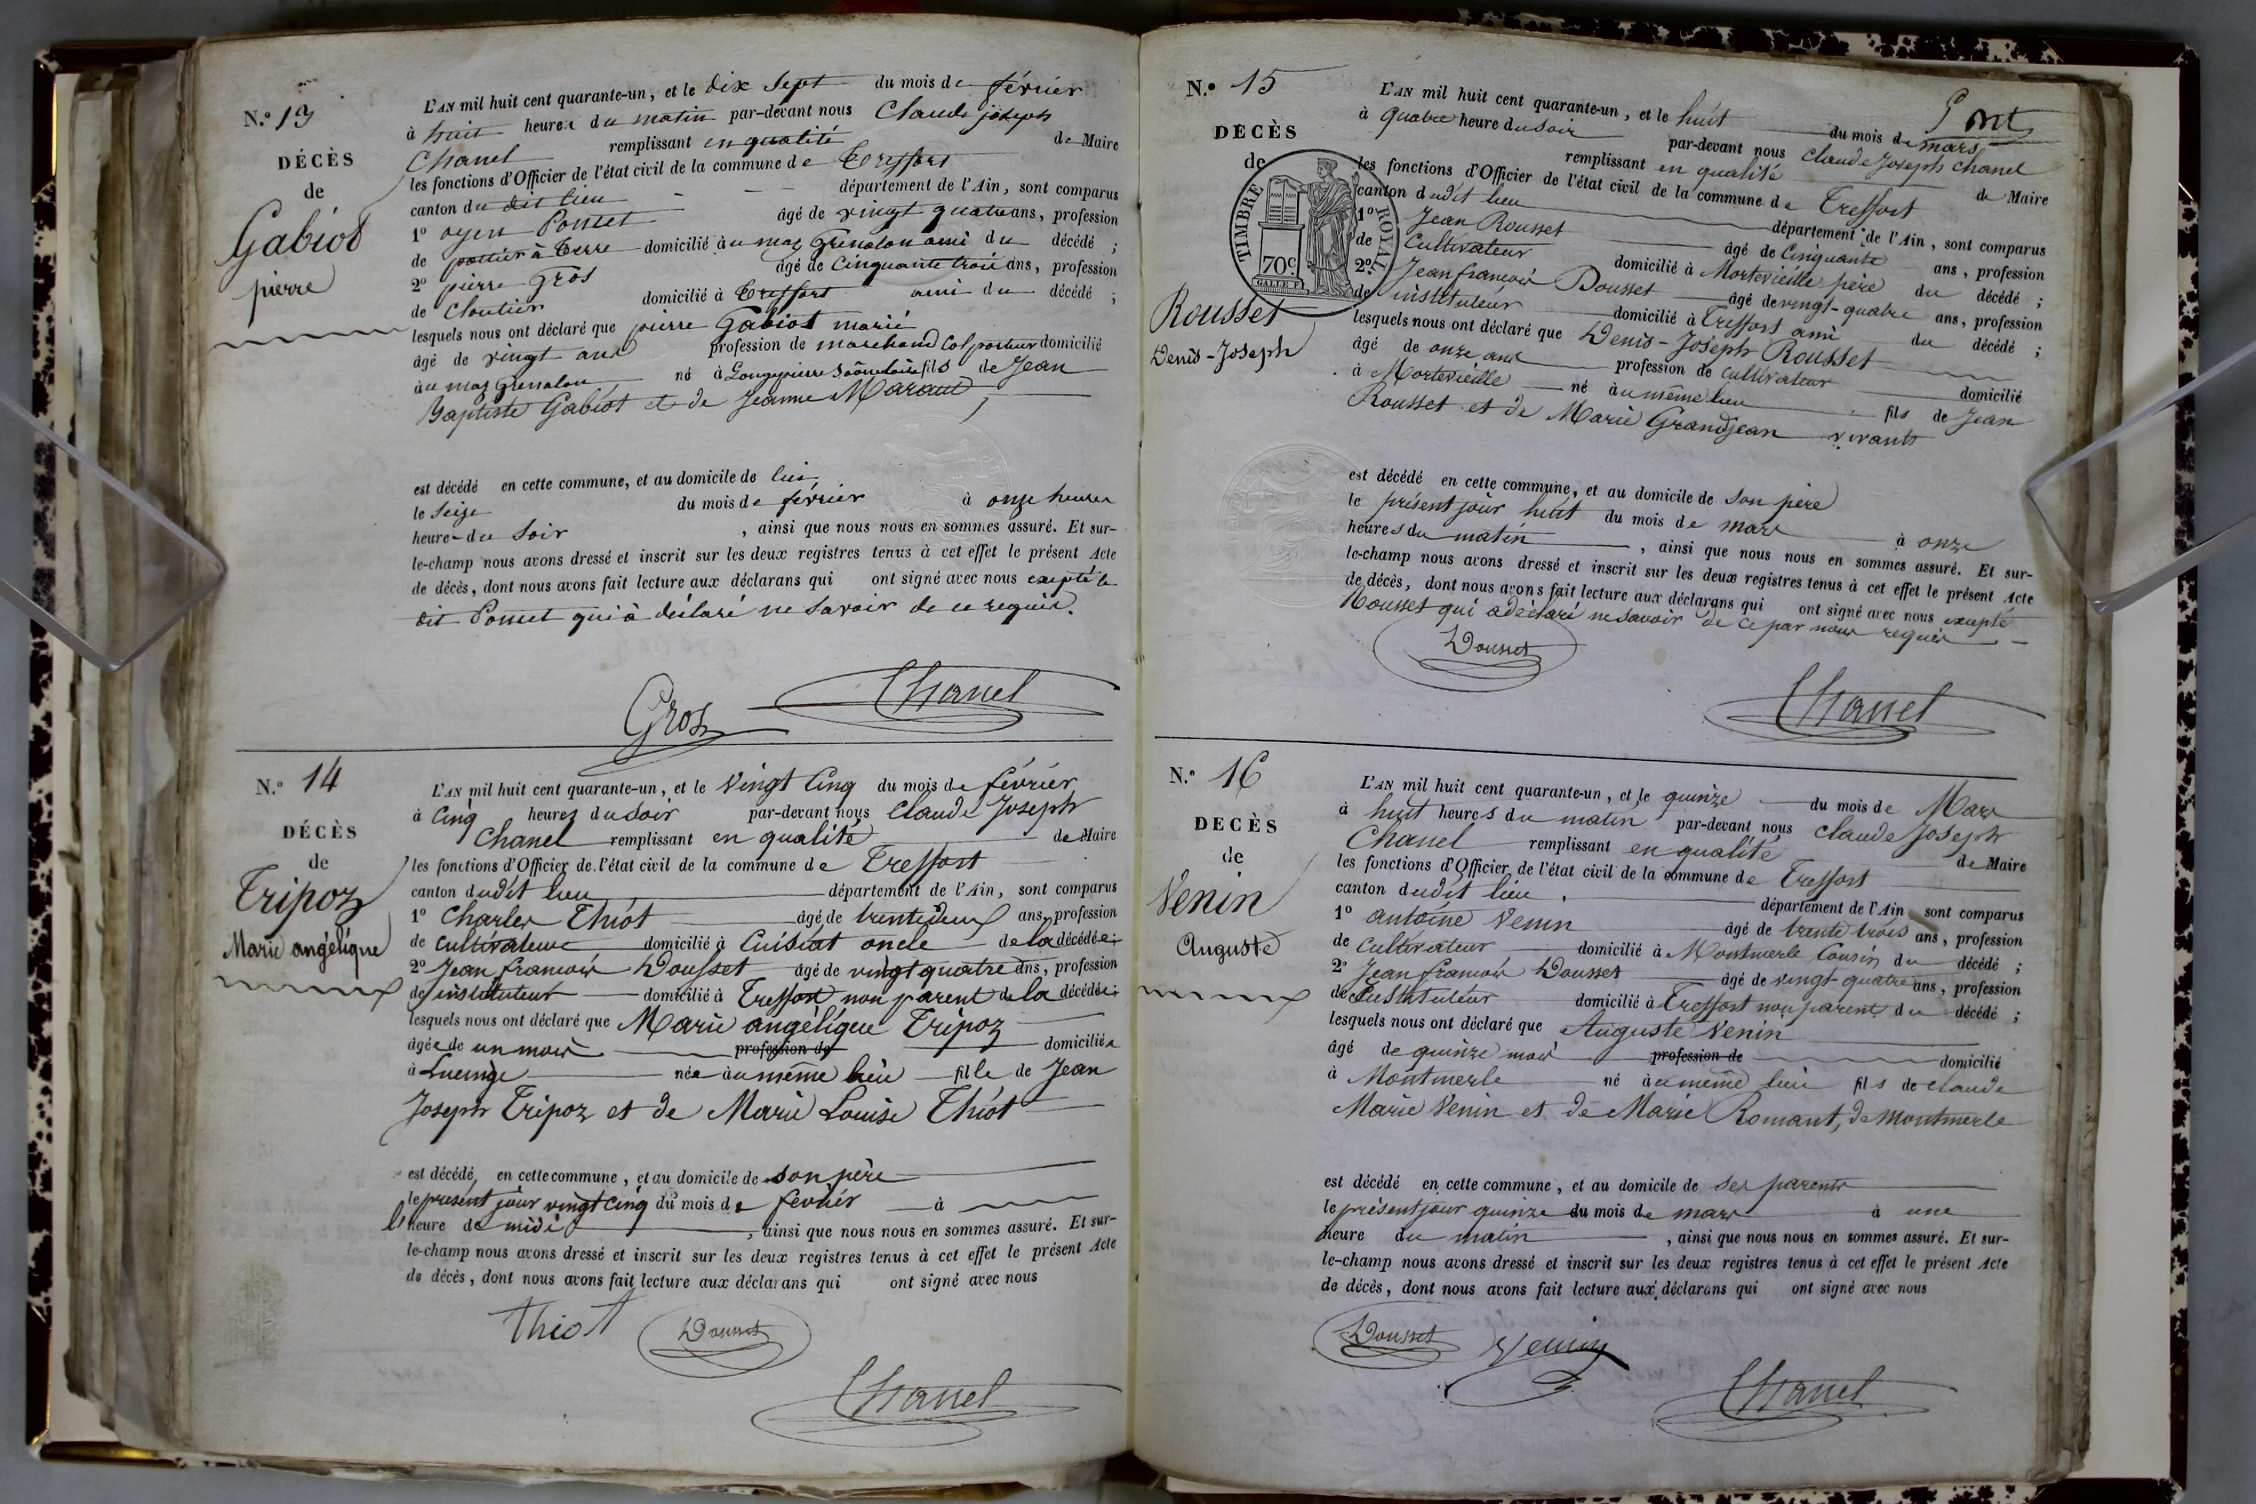 N.º 13
DÉCÈS
de
Gabiot
pierre
L'AN mil huit cent quarante-un, et le dix Sept du mois de février
à huit heures du matin par-devant nous Claude joseph
Chanel remplissant en qualité de Maire
les fonctions d'Officier de l'état civil de la commune de Treffort
canton du dit lieu département de l'Ain, sont comparus
1º Poncet âgé de vingt quatre ans, profession
de pottier à terre domicilié au mas Grenalon ami du décédé ;
2º pierre Gros âgé de Cinquante trois ans, profession
de Cloutier domicilié à Treffort ami du décédé ;
lesquels nous ont déclaré que pierre Gabiot marié
âgé de vingt ans profession de marchand Colporteur domicilié
au mas Grenalon né à Longepierre Saône loire fils de Jean
Baptiste Gabiot et de Jeanne
est décédé en cette commune, et au domicile de lui
le Seize du mois de février à onze heures
heure du Soir , ainsi que nous nous en sommes assuré. Et sur-
le-champ nous avons dressé et inscrit sur les deux registres tenus à cet effet le présent Acte
de décès, dont nous avons fait lecture aux déclarans qui ont signé avec nous exepté le
dit Poncet qui à déclaré ne Savoir de ce requis.
Gros Chanel
N.º 14
DÉCÈS
de
Tripoz
Marie angélique
L'AN mil huit cent quarante-un, et le Vingt Cinq du mois de février
à Cinq heures du soir par-devant nous Claude Joseph
Chanel remplissant en qualité de Maire
les fonctions d'Officier de l'état civil de la commune de Treffort
canton dudit lieu département de l'Ain, sont comparus
1º Charles Thiot âgé de trente deux ans, profession
de Cultivateur domicilié à Cuisiat oncle de la décédée ;
2º Jean francois Dousset âgé de vingt quatre ans, profession
de instituteur domicilié à Treffort non parent de la décédée ;
lesquels nous ont déclaré que Marie angélique Tripoz
âgée de un mois profession de domiciliée
à Lucinge née au même lieu fille de Jean
Joseph Tripoz et de Marie Louise Thiot
est décédé, en cette commune, et au domicile de son père
le présent jour vingt cinq du mois de février à
l' heure de midi , ainsi que nous nous en sommes assuré. Et sur-
le-champ nous avons dressé et inscrit sur les deux registres tenus à cet effet le présent Acte
de décès, dont nous avons fait lecture aux déclarans qui ont signé avec nous
Thiot Dousset
Chanel
N.º 15
DÉCÈS
de
Rousset
Denis-Joseph
TIMBRE ROYAL
70 c
L'AN mil huit cent quarante-un, et le huit du mois de mars
à quatre heure du soir par-devant nous Claude Joseph Chanel
remplissant en qualité de Maire
les fonctions d'Officier de l'état civil de la commune de Treffort
canton dudit lieu département de l'Ain, sont comparus
1º Jean Rousset âgé de Cinquante ans, profession
de Cultivateur domicilié à Mortevieille père du décédé ;
2º Jean francois Dousset âgé de vingt-quatre ans, profession
de instituteur domicilié à Treffort ami du décédé ;
lesquels nous ont déclaré que Denis-Joseph Rousset
âgé de onze ans profession de cultivateur domicilié
à Mortevieille né au même lieu fils de Jean
Rousset et de Marie Grandjean vivants
est décédé en cette commune, et au domicile de Son père
le présent jour huit du mois de mars à onze
heures du matin , ainsi que nous nous en sommes assuré. Et sur-
le-champ nous avons dressé et inscrit sur les deux registres tenus à cet effet le présent Acte
de décès, dont nous avons fait lecture aux déclarans qui ont signé avec nous exepté
Rousset qui a déclaré ne savoir de ce par nous requis
Dousset
Chanel
N.º 16
DECÈS
de
Venin
Auguste
L'AN mil huit cent quarante-un, et le quinze du mois de Mars
à huit heures du matin par-devant nous Claude Joseph
Chanel remplissant en qualité de Maire
les fonctions d'Officier de l'état civil de la commune de Treffort
canton dudit lieu département de l'Ain sont comparus
1º antoine Venin âgé de trente trois ans, profession
de Cultivateur domicilié à Montmerle Cousin du décédé ;
2º Jean francois Dousset âgé de vingt quatre ans, profession
de Instituteur domicilié à Treffort non parent du décédé ;
lesquels nous ont déclaré que Auguste Venin
âgé de quinze mois profession de domicilié
à Montmerle né au même lieu fils de Claude
Marie Venin et de Marie Romant, de Montmerle
est décédé en cette commune, et au domicile de ses parents
le présent jour quinze du mois de mars à une
heure du matin , ainsi que nous nous en sommes assuré. Et sur-
le-champ nous avons dressé et inscrit sur les deux registres tenus à cet effet le présent Acte
de décès, dont nous avons fait lecture aux déclarans qui ont signé avec nous
Dousset Venin
Chanel